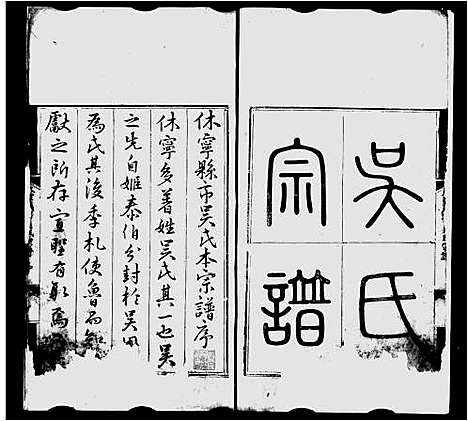 吳氏
宗譜
休寧縣市吳氏本宗譜序
休寧多著姓吳氏其一也吳
之先自姬泰伯分封於吳因
為氏其後季札使魯而知
獻之所存宣聖有取焉